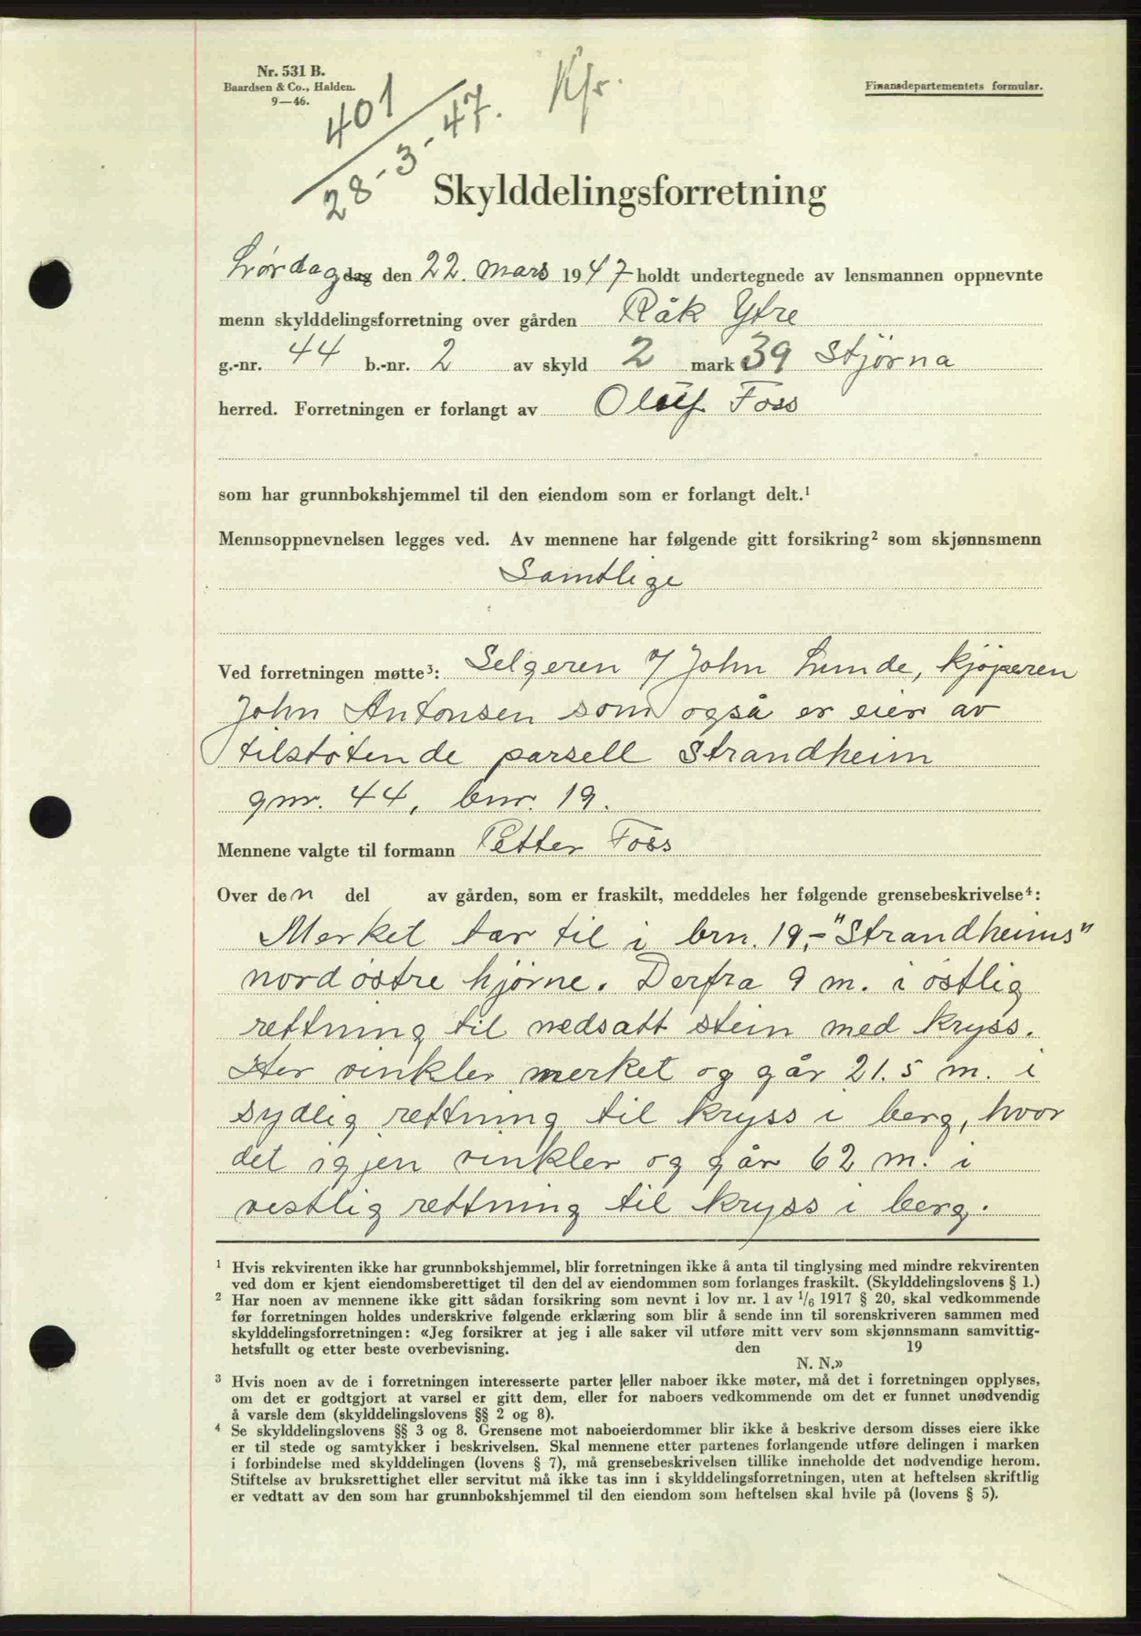 Nr. 531 B.
Baardsen & Co., Halden.
9—46.
Finansdepartementets formular.
401
28-3-47.
Kfr.
Skylddelingsforretning
Lørdag dag den 22. mars 1947 holdt undertegnede av lensmannen oppnevnte
menn skylddelingsforretning over gården Råk Ytre
g.-nr. 44 b.-nr. 2 av skyld 2 mark 39 Stjørna
herred. Forretningen er forlangt av Oluf Foss
som har grunnbokshjemmel til den eiendom som er forlangt delt.¹
Mennsoppnevnelsen legges ved. Av mennene har følgende gitt forsikring² som skjønnsmenn
Samtlige
Ved forretningen møtte³: Selgeren v/ John Lunde, kjøperen
John Antonsen som også er eier av
tilstøtende parsell Strandheim
gnr. 44, bnr. 19.
Mennene valgte til formann Petter Foss
Over den del av gården, som er fraskilt, meddeles her følgende grensebeskrivelse⁴:
Merket tar til i brn. 19,- "Strandheims"
nordøstre hjørne. Derfra 9 m. i østlig
rettning til nedsatt stein med kryss.
Her vinkler merket og går 21.5 m. i
sydlig rettning til kryss i berg, hvor
det igjen vinkler og går 62 m. i
vestlig rettning til kryss i berg.
¹ Hvis rekvirenten ikke har grunnbokshjemmel, blir forretningen ikke å anta til tinglysing med mindre rekvirenten
ved dom er kjent eiendomsberettiget til den del av eiendommen som forlanges fraskilt. (Skylddelingslovens § 1.)
² Har noen av mennene ikke gitt sådan forsikring som nevnt i lov nr. 1 av ¹/₆ 1917 § 20, skal vedkommende
før forretningen holdes underskrive følgende erklæring som blir å sende inn til sorenskriveren sammen med
skylddelingsforretningen: «Jeg forsikrer at jeg i alle saker vil utføre mitt verv som skjønnsmann samvittig-
hetsfullt og etter beste overbevisning. den 19
N. N.»
³ Hvis noen av de i forretningen interesserte parter eller naboer ikke møter, må det i forretningen opplyses,
om det er godtgjort at varsel er gitt dem, eller for naboers vedkommende om det er funnet unødvendig
å varsle dem (skylddelingslovens §§ 2 og 8).
⁴ Se skylddelingslovens §§ 3 og 8. Grensene mot naboeierdommer blir ikke å beskrive dersom disses eiere ikke
er til stede og samtykker i beskrivelsen. Skal mennene etter partenes forlangende utføre delingen i marken
i forbindelse med skylddelingen (lovens § 7), må grensebeskrivelsen tillike inneholde det nødvendige herom.
Stiftelse av bruksrettighet eller servitut må ikke tas inn i skylddelingsforretningen, uten at heftelsen skriftlig
er vedtatt av den som har grunnbokshjemmel til den eiendom som heftelsen skal hvile på (lovens § 5).